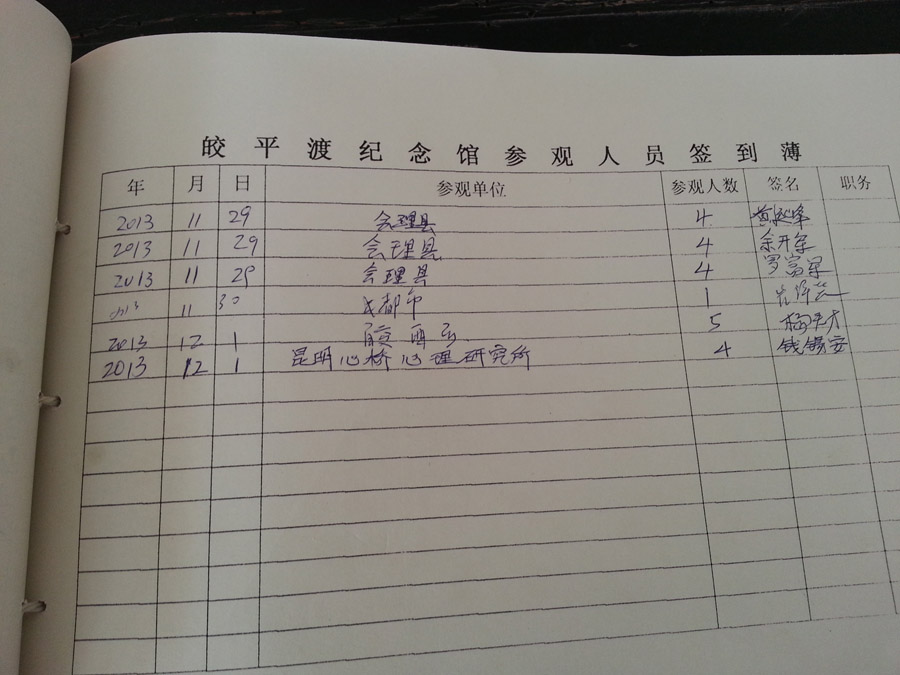 皎平渡纪念馆参观人员签到薄
年 月 日 参观单位 参观人数 签名 职务
2013 11 29 会理县 4
2013 11 29 会理县 4 余开军
2013 11 29 会理县 4 罗富军
2013 11 30 成都市 1
2013 12 1 5
2013 12 1 昆明心桥心理研究所 4 钱锡安